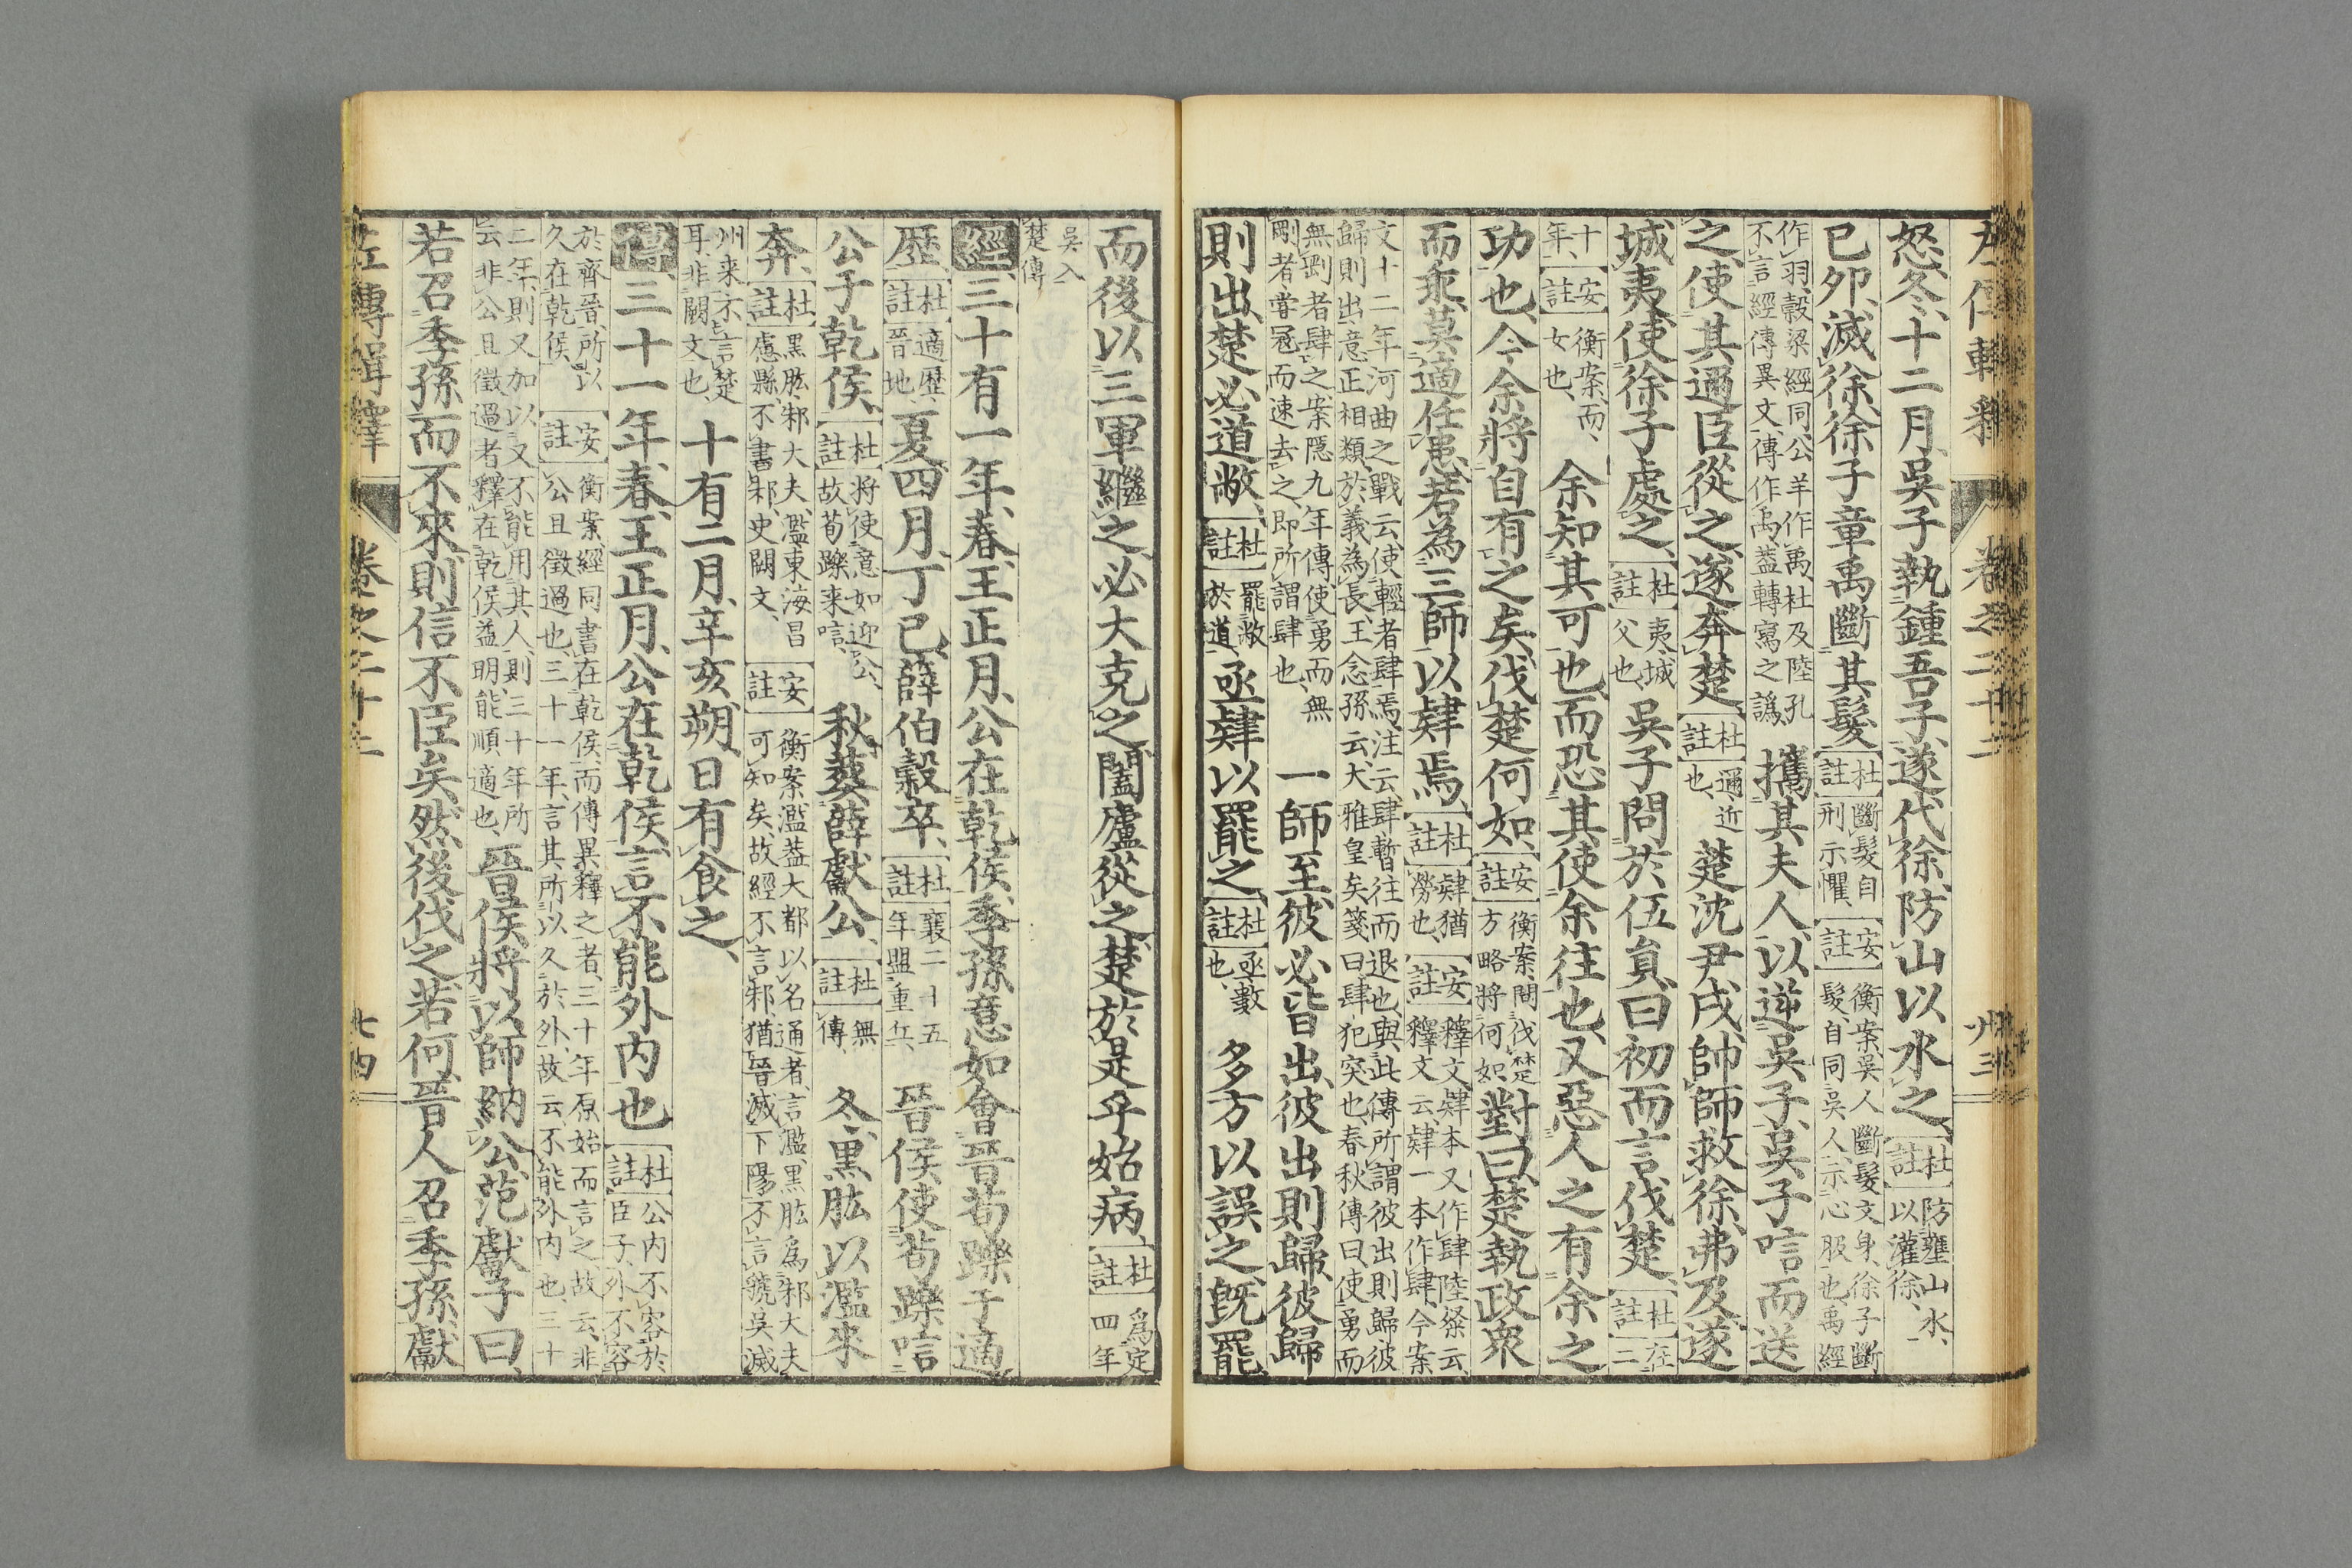 怒、冬、十二月、吳子執鍾吾子、遂代徐、防山以水之、杜註防壅山水、以灌徐、
已夘、滅徐、徐子章禹斷其髮、杜註斷髮自刑示懼、安註衡案、吳人斷髮文身、徐子斷髮、自同吳人、示心服也、禹經
作羽、穀梁經同、公羊作禹、杜及陸孔不言經傳異文、傳作禹葢轉寫之譌、攜其夫人、以逆吳子、吳子唁而送
之、使其邇臣從之、遂奔楚、杜註邇近也、楚沈尹戌帥師救徐、弗及、遂
城夷、使徐子處之、杜註夷、城父也、吳子問於伍員曰、初而言伐楚、杜註在二
十年、安註衡案、而、女也、余知其可也、而恐其使余往也、又惡人之有余之
功也、今余將自有之矣、伐楚何如、安註衡案、問伐楚方略將何如、對曰、楚執政衆
而乖、莫適任患、若為三師以肄焉、杜註肄猶勞也、安註釋文肄本又作肆、陸粲云、釋文云、肄一本作肆、今案
文十二年河曲之戰云、使輕者肆焉、注云、肆暫往而退也、與此傳所謂彼出則歸、彼歸則出、意正相類、於義為長、王念孫云、大雅皇矣箋曰、肆、犯突也、春秋傳曰、使勇而
無剛者肆之、案隱九年傳、使勇而無剛者、嘗冦而速去之、即所謂肆也、一師至、彼必皆出、彼出則歸、彼歸
則出、楚必道敝、杜註罷敝於道、亟肄以罷之、杜註亟數也、多方以誤之、既罷
而後以三軍繼之、必大克之、闔廬從之、楚於是乎始病、杜註為定四年
吳入楚傳
經三十有一年、春、王正月、公在乾侯、季孫意如會晉荀躒于適
歷、杜註適歷、晉地、夏四月、丁巳、薛伯穀卒、杜註襄二十五年盟重丘、晉侯使荀躒唁
公于乾侯、杜註將使意如迎公、故荀躒来唁、秋、葬薛獻公、杜註無傳、冬、黒肱以濫來
奔、杜註黒肱、邾大夫、濫、東海昌慮縣、不書邾、史闕文、安註衡案、濫葢大都、以名通者、言濫、黒肱為邾大夫可知矣、故經不言邾、猶晉滅下陽不言虢、吳滅
州来不言楚耳、非闕文也、十有二月、辛亥、朔、日有食之、
傳三十一年、春、王正月、公在乾侯、言不能外内也、杜註公内不容於臣子、外不容
於齊晉、所以久在乾侯、安註衡案、經同書在乾侯、而傳異釋之者、三十年原始而言之、故云、非公且徵過也、三十一年、言其所以久於外、故云、不能外内也、三十
二年、則又加以又不能用其人、則三十年所云、非公且徵過者、釋在乾侯益明、能順適也、晉侯將以師納公、范獻子曰、
若召季孫而不來、則信不臣矣、然後伐之、若何、晉人召季孫、獻
左傳輯釋　卷之二十二　七四
卷之二十二　卅三